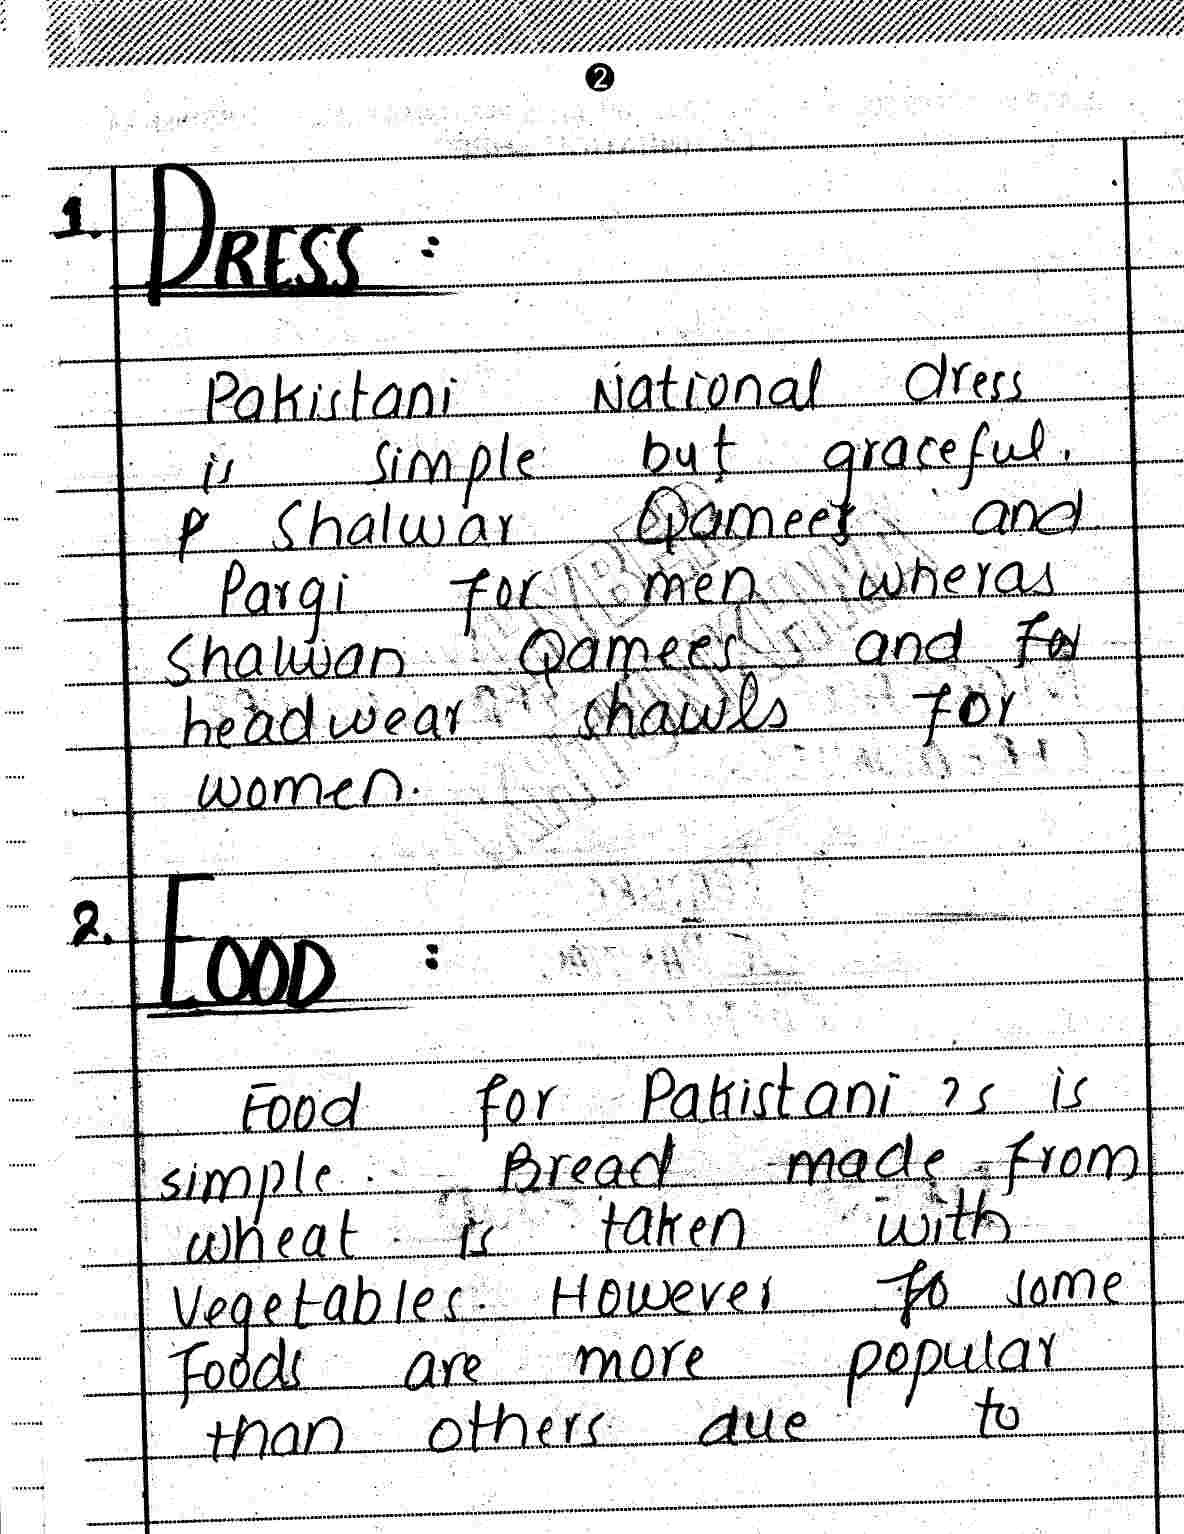 2
1. DRESS :
Pakistani National dress
is simple but graceful.
Shalwar Qamees and
Pargi for men wheras
Shalwan Qamees and for
headwear shawls for
women.
2. FOOD :
Food for Pakistani's is
simple. Bread made from
wheat is taken with
Vegetables. However fo some
Foods are more popular
than others due to